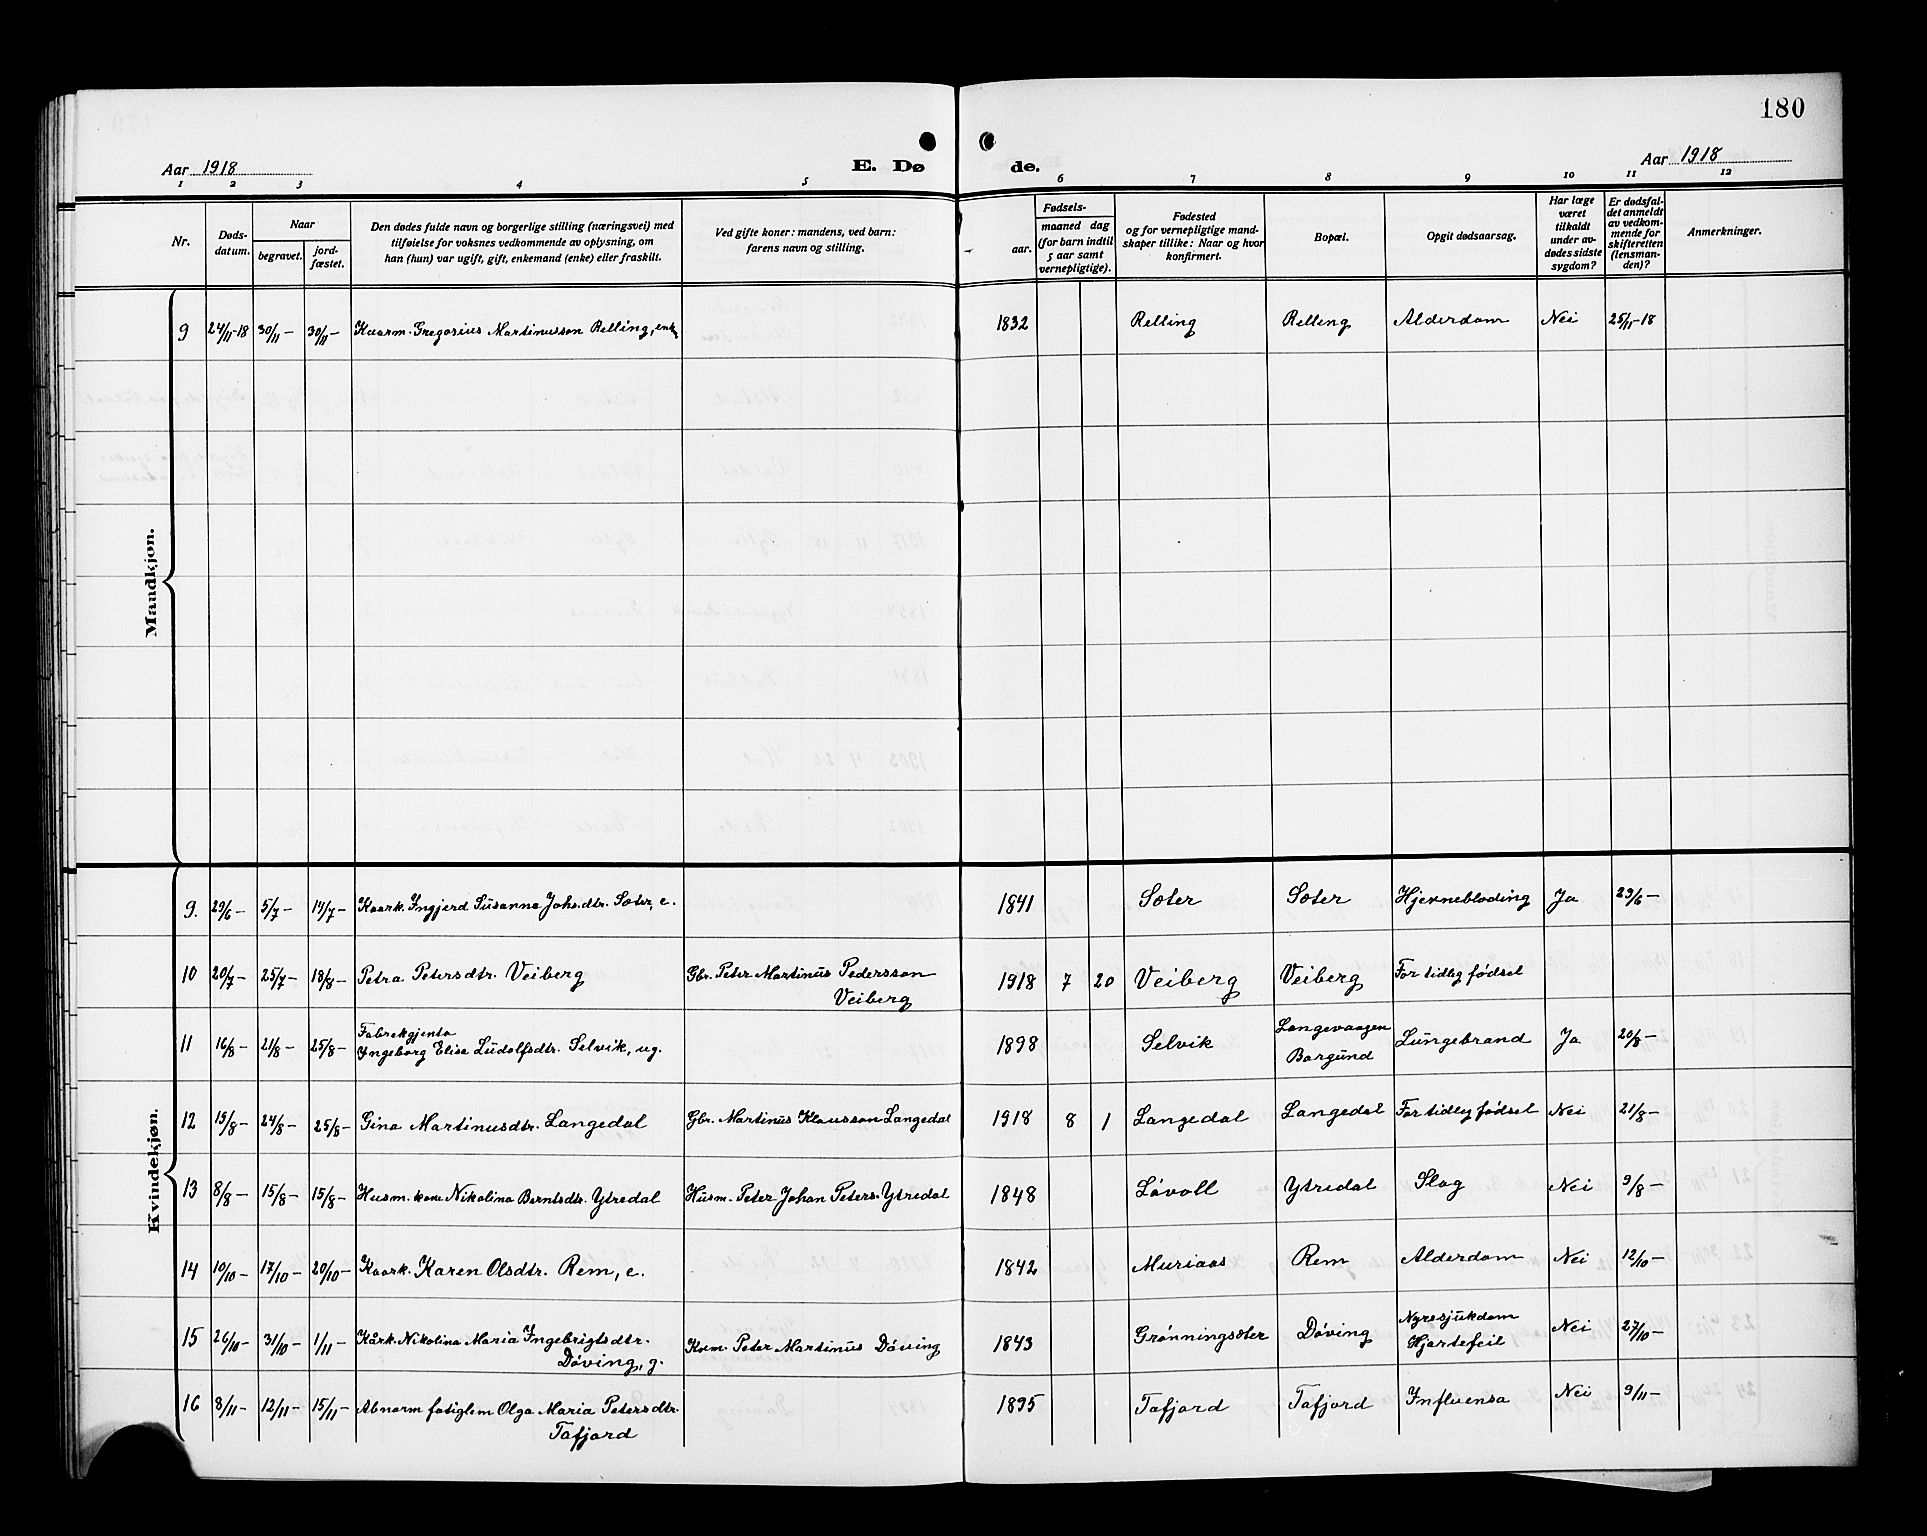 180
Aar 1918
E. Dø
de.
Aar 1918
1 2 3 4 5 6 7 8 9 10 11 12
Nr.
Døds-
datum.
Naar
begravet.
jord-
fæstet.
Den dødes fulde navn og borgerlige stilling (næringsvei) med
tilføielse for voksnes vedkommende av oplysning, om
han (hun) var ugift, gift, enkemand (enke) eller fraskilt.
Ved gifte koner: mandens, ved barn:
farens navn og stilling.
Fødsels-
aar.
maaned dag
(for barn indtil
5 aar samt
vernepligtige).
Fødested
og for vernepligtige mand-
skaper tillike: Naar og hvor
konfirmert.
Bopæl.
Opgit dødsaarsag.
Har læge
været
tilkaldt
under av-
dødes sidste
sygdom?
Er dødsfal-
det anmeldt
av vedkom-
mende for
skifteretten
(lensman-
den)?
Anmerkninger.
Mandkjøn.
9 24/11-18 30/11- 30/11- Kaarm. Gregorius Martinusson Relling, enk. 1832 Relling Relling Alderdom Nei 25/11-18
Kvindekjøn.
9. 29/6- 5/7- 14/7- Kaark. Ingjerd Susanna Johs.dtr. Sæter, e. 1841 Sæter Sæter Hjernebløding Ja 29/6-
10 20/7- 25/7- 18/8- Petra Petersdtr. Veiberg Gbr. Peter Martinus Pedersson
Veiberg 1918 7 20 Veiberg Veiberg For tidleg fødsel
11 16/8- 21/8- 25/8- Fabrekgjenta
Ingeborg Elise Ludolfsdtr. Selvik, ug. 1898 Selvik Langevaagen
Borgund Lungebrand Ja 20/8-
12 19/8- 24/8- 25/8- Gina Martinusdtr. Langedal Gbr. Martinus Klausson Langedal 1918 8 1 Langedal Langedal For tidleg fødsel Nei 21/8-
13 8/8- 15/8- 15/8- Husm. kone Nikolina Berntsdtr. Ytredal Husm. Peter Johan Peters. Ytredal 1848 Løvoll Ytredal Slag Nei 9/8-
14 10/10- 17/10- 20/10- Kaark. Karen Olsdtr. Rem, e. 1842 Muriaas Rem Alderdom Nei 12/10-
15 26/10- 31/10- 1/11- Kårk. Nikolina Maria Ingebrigtsdtr.
Døving, g. Krm. Peter Martinus Døving 1843 Grønningsæter Døving Nyresjukdom
Hjartefeil Nei 27/10-
16 8/11- 12/11- 15/11- Abnorm fatiglem Olga Maria Petersdtr.
Tafjord 1895 Tafjord Tafjord Influensa Nei 9/11-